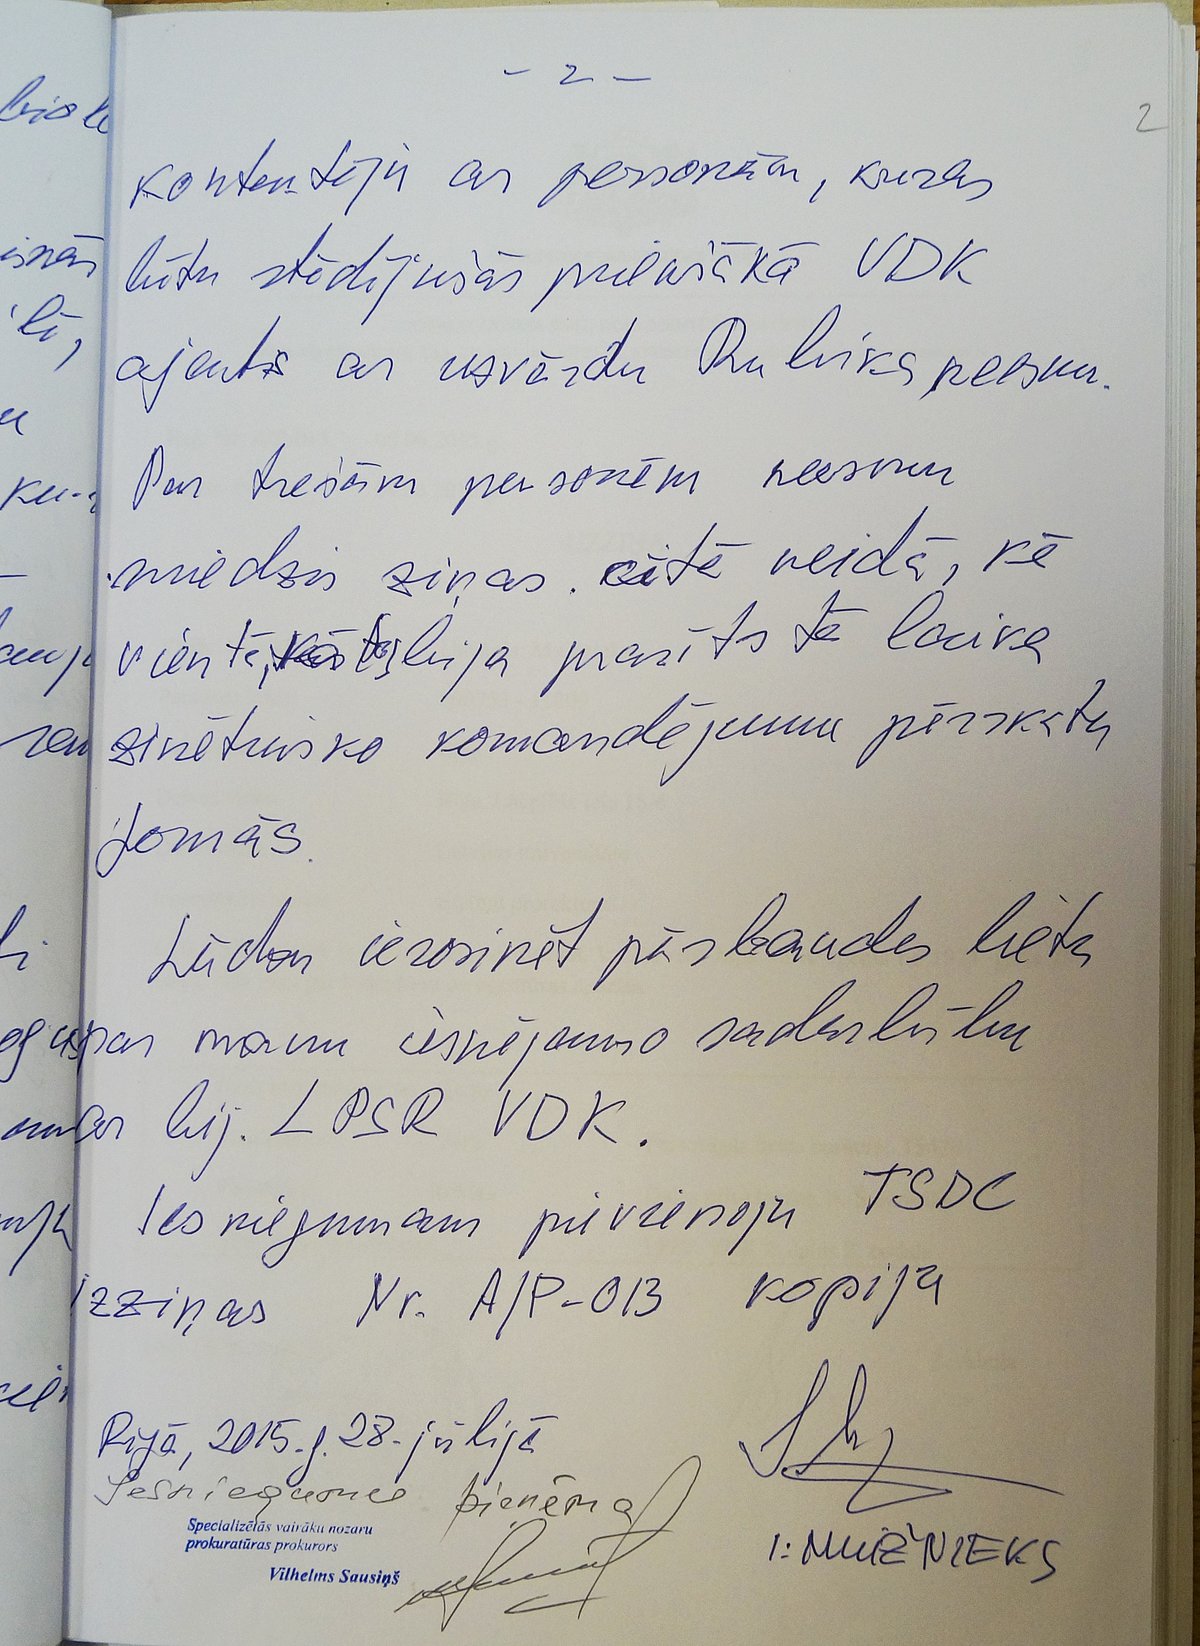 - 2 -
2
kontaktēju ar personām, kuras
būtu stādījušās priekšā kā VDK
aģents ar uzvārdu Rubika neesmu.
Par trešām personām neesmu
sniedzis ziņas citā veidā, kā
vien tā, bija prasīts tā laika
zinātnisko komandējumu pārskatu
formās.
Lūdzu ierosināt pārbaudes lietu
par manu iespējamo sadarbību
ar bij. LPSR VDK.
Iesniegumam pievienoju TSDC
izziņas Nr. A/P-013 kopiju
Rīgā, 2015. g. 28. jūlijā
Iesniegumu pieņēma
Specializētās vairāku nozaru
prokuratūras prokurors
Vilhelms Sausiņš
I. MUIŽNIEKS